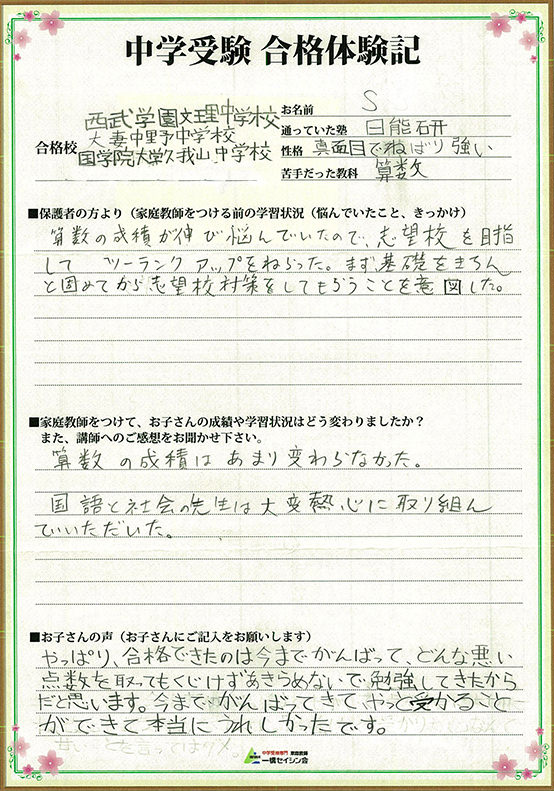 中学受験 合格体験記
合格校
西武学園文理中学校
大妻中野中学校
国学院大学久我山中学校
お名前 S
通っていた塾 日能研
性格 真面目でねばり強い
苦手だった教科 算数
■保護者の方より（家庭教師をつける前の学習状況（悩んでいたこと、きっかけ）
算数の成績が伸び悩んでいたので、志望校を目指
して ツーランクアップをねらった。まず基礎をきちん
と固めてから志望校対策をしてもらうことを意図した。
■家庭教師をつけて、お子さんの成績や学習状況はどう変わりましたか？
また、講師へのご感想をお聞かせ下さい。
算数の成績はあまり変わらなかった。
国語と社会の先生は大変熱心に取り組ん
でいただいた。
■お子さんの声（お子さんにご記入をお願いします）
やっぱり、合格できたのは今までがんばって、どんな悪い
点数を取ってもくじけずあきらめないで勉強してきたから
だと思います。今までがんばってきて、やっと受かること
ができて本当にうれしかったです。
中学受験専門 家庭教師
一橋セイシン会